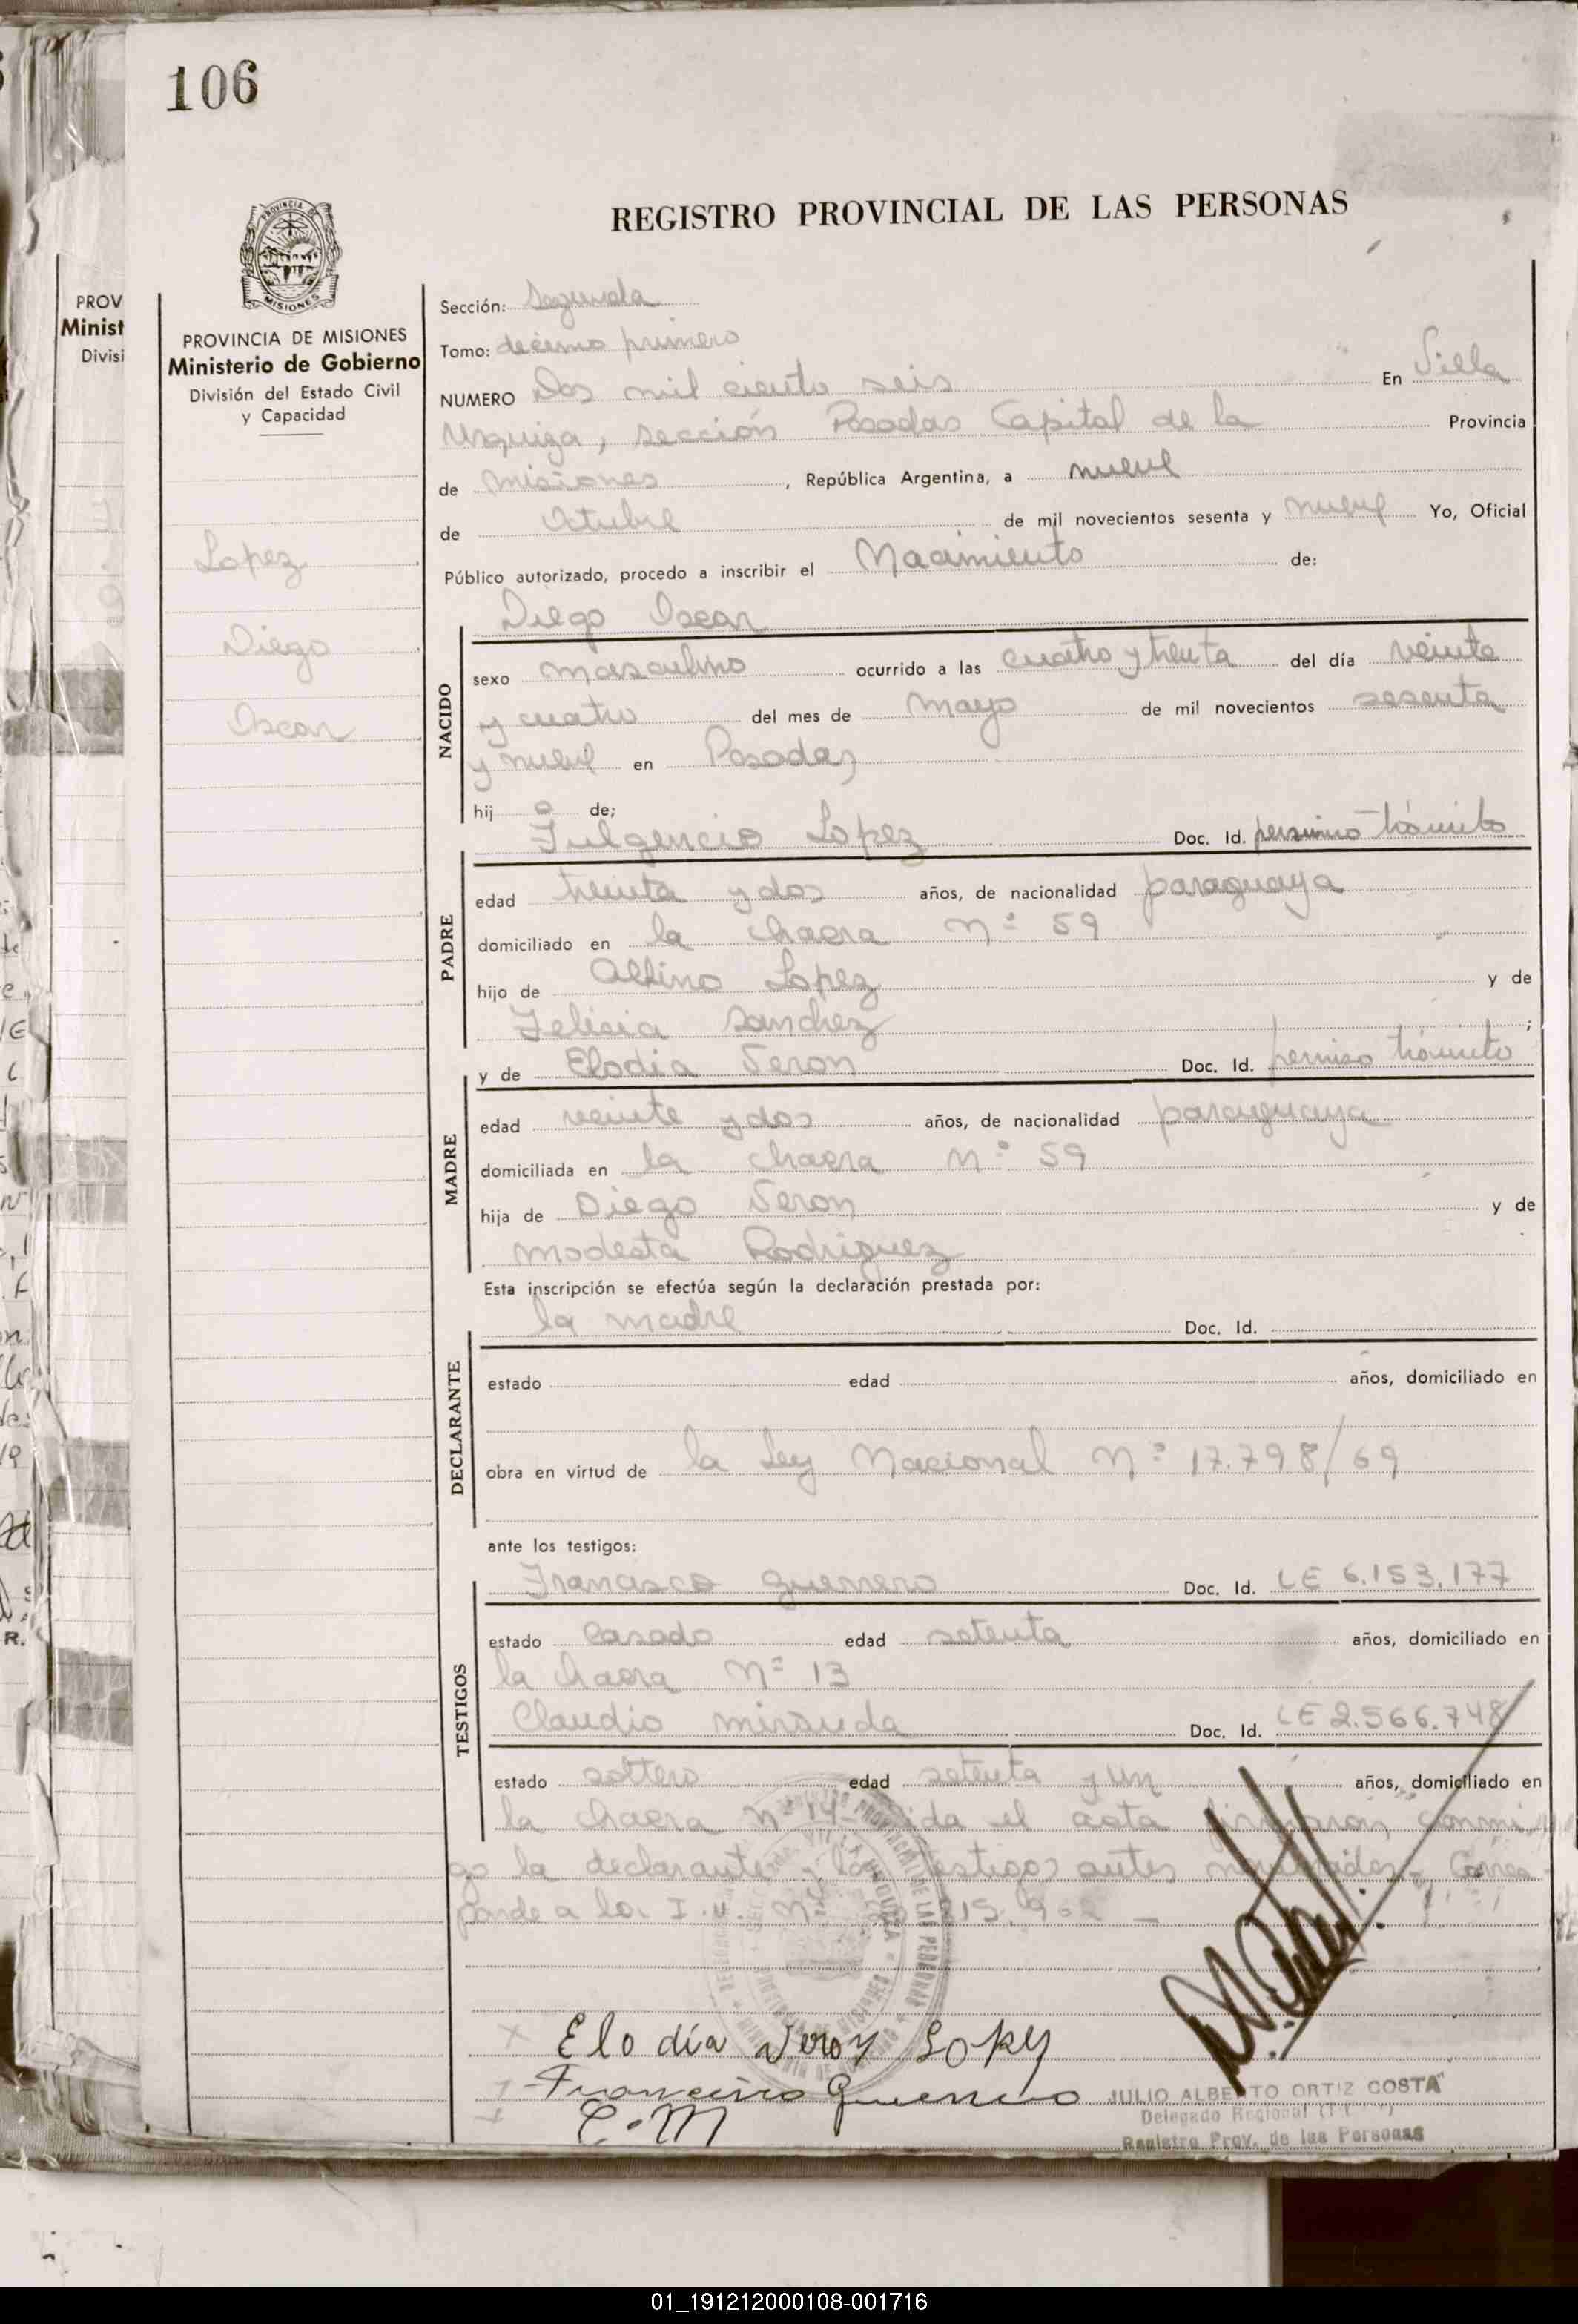 106
REGISTRO PROVINCIAL DE LAS PERSONAS
PROVINCIA DE
MISIONES
PROVINCIA DE MISIONES
Ministerio de Gobierno
División del Estado Civil
y Capacidad
Lopez
Diego
Oscar
PROV
Minist
Divisi
Sección: Segunda
Tomo: decimo primero
NUMERO Dos mil ciento seis En Villa
Urquiza, sección Posadas Capital de la Provincia
de Misiones, República Argentina, a nueve
de Octubre de mil novecientos sesenta y nueve Yo, Oficial
Público autorizado, procedo a inscribir el Nacimiento de:
Diego Oscar
NACIDO
sexo masculino ocurrido a las cuatro y treinta del día veinte
y cuatro del mes de mayo de mil novecientos sesenta
y nueve en Posadas
hij o de;
Fulgencio Lopez Doc. Id. permiso tránsito
PADRE
edad treinta y dos años, de nacionalidad paraguaya
domiciliado en la chacra Nº 59
hijo de Albino Lopez y de
Felicia Sanchez ;
y de Elodia Veron Doc. Id. permiso tránsito
MADRE
edad veinte y dos años, de nacionalidad paraguaya
domiciliada en la chacra Nº 59
hija de Diego Veron y de
Modesta Rodriguez
Esta inscripción se efectúa según la declaración prestada por:
la madre Doc. Id.
DECLARANTE
estado edad años, domiciliado en
obra en virtud de la Ley Nacional Nº 17.798/69
ante los testigos:
Francisco Guerrero Doc. Id. LE 6.153.177
TESTIGOS
estado casado edad setenta años, domiciliado en
la chacra Nº 13
Claudio Miranda Doc. Id. LE 2.566.748
estado soltero edad setenta y un años, domiciliado en
la chacra Nº 14 el acta conmi
go la declarante y los testigos antes Corres
ponde a la I.U. Nº
Elodia Veron Lopez
Francisco Guerrero
C.M
JULIO ALBERTO ORTIZ COSTA
Delegado Regional
Registro Prov. de las Personas
01_191212000108-001716